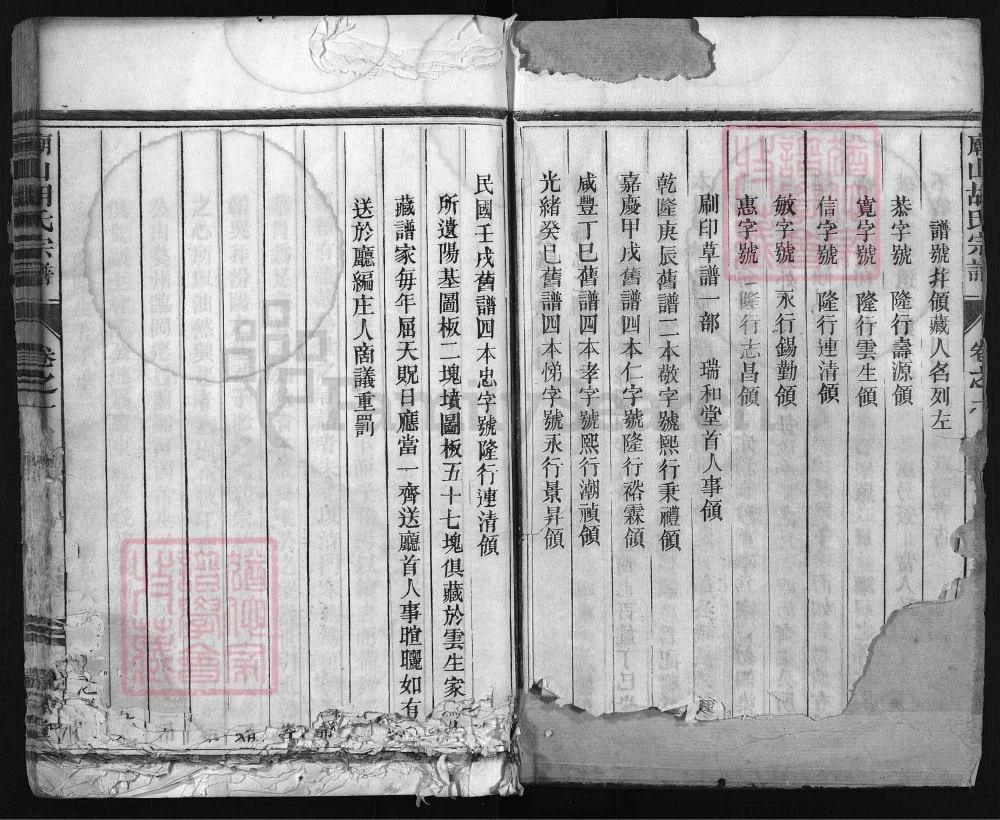 廟山胡氏宗譜
卷之
譜號幷領藏人名列左
恭字號　隆行壽源領
寬字號　隆行雲生領
信字號　隆行連清領
敏字號　永行錫勤領
惠字號　隆行志昌領
刷印草譜一部　瑞和堂首人事領
乾隆庚辰舊譜二本敬字號熙行秉禮領
嘉慶甲戌舊譜四本仁字號隆行裕霖領
咸豐丁巳舊譜四本孝字號熙行潮禎領
光緒癸巳舊譜四本悌字號永行景昇領
民國壬戌舊譜四本忠字號隆行連清領
所遺陽基圖板二塊墳圖板五十七塊俱藏於雲生家
藏譜家每年屈天貺日應當一齊送廳首人事暄曬如有
送於廳編庄人商議重罰
胡氏宗譜
卷之
FamilySearch